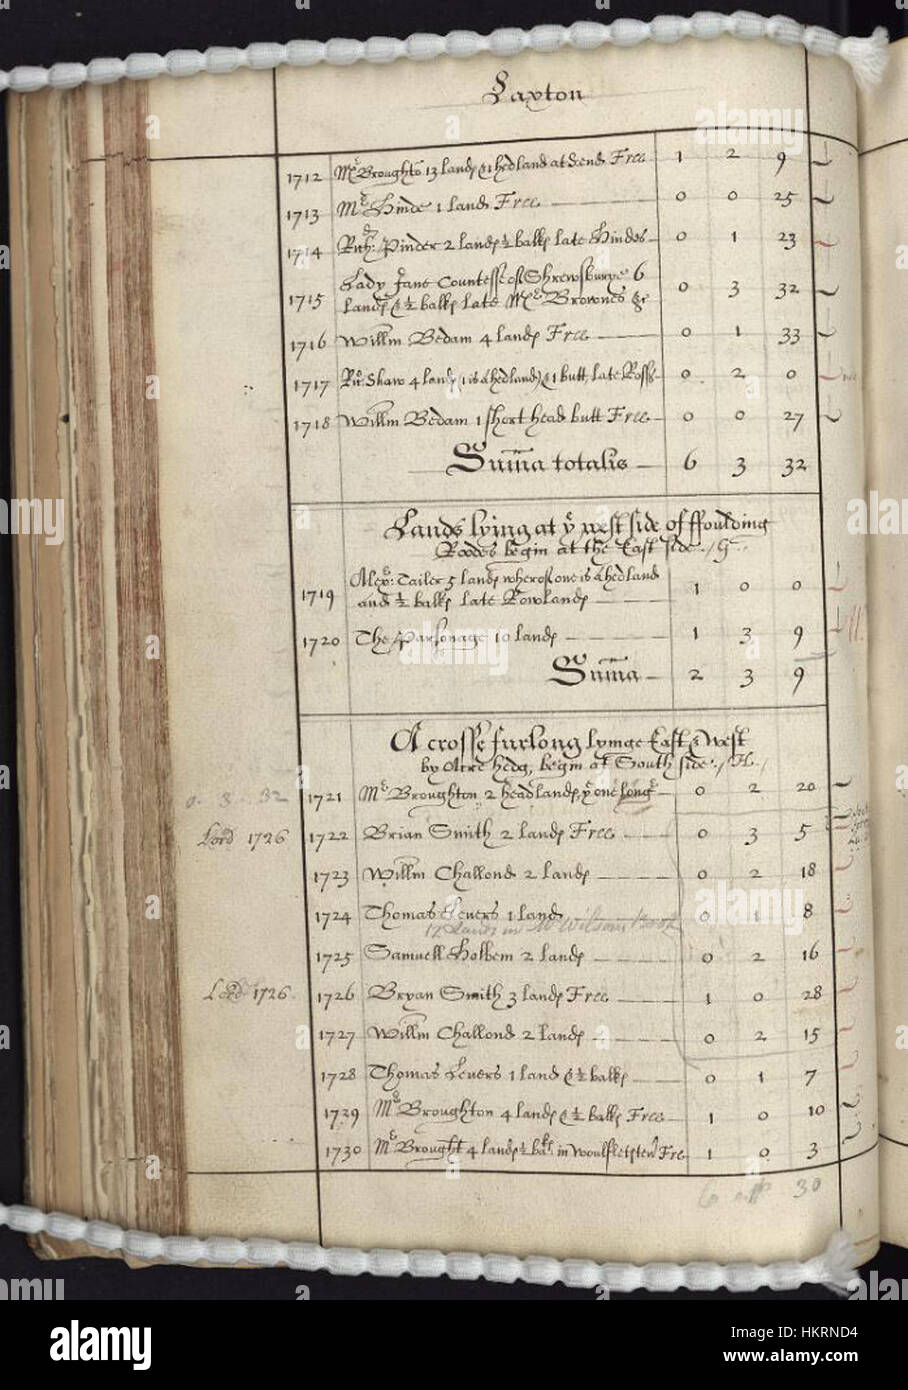 Laxton
1712 Mr Broughto 13 lands & 1 hedland at d. end Free 1 2 9
1713 Mr Hinde 1 land Free 0 0 25
1714 Rich: Pinder 2 lands ½ balk late Hindes 0 1 23
1715 Lady Jane Countesse of Shrewsburye 6
lands & ½ balk late Mr Brownes &c 0 3 32
1716 Willm Bedam 4 lands Free 0 1 33
1717 Ri: Shaw 4 lands (1 is a hedland) & 1 butt, late Rosse 0 2 0
1718 Willm Bedam 1 short head butt Free 0 0 27
Suma totalis 6 3 32
Lands lying at ye west side of ffoulding
Roodes begin at the East side. G.
1719 Alex: Tailer 5 lands whereof one is a hedland
and ½ balk late Rowlands 1 0 0
1720 The Parsonage 10 lands 1 3 9
Suma 2 3 9
A crosse furlong lyinge East & West
by Acre hedg, begin at South side. H.
0. 3 32 1721 Mr Broughton 2 headlands, ye one longe 0 2 20
Lord 1726 1722 Brian Smith 2 lands Free 0 3 5
1723 Willm Challond 2 lands 0 2 18
1724 Thomas Levers 1 land 0 1 8
17 Lands in Mr Wilsons Book
1725 Samuell Holbem 2 lands 0 2 16
Lord 1726 1726 Bryan Smith 3 lands Free 1 0 28
1727 Willm Challond 2 lands 0 2 15
1728 Thomas Levers 1 land & ½ balk 0 1 7
1729 Mr Broughton 4 lands & ½ balk Free 1 0 10
1730 Mr Brought 4 lands ½ balk in Woulfletsten Fre 1 0 3
6 30
alamy
Image ID: HKRND4
www.alamy.com